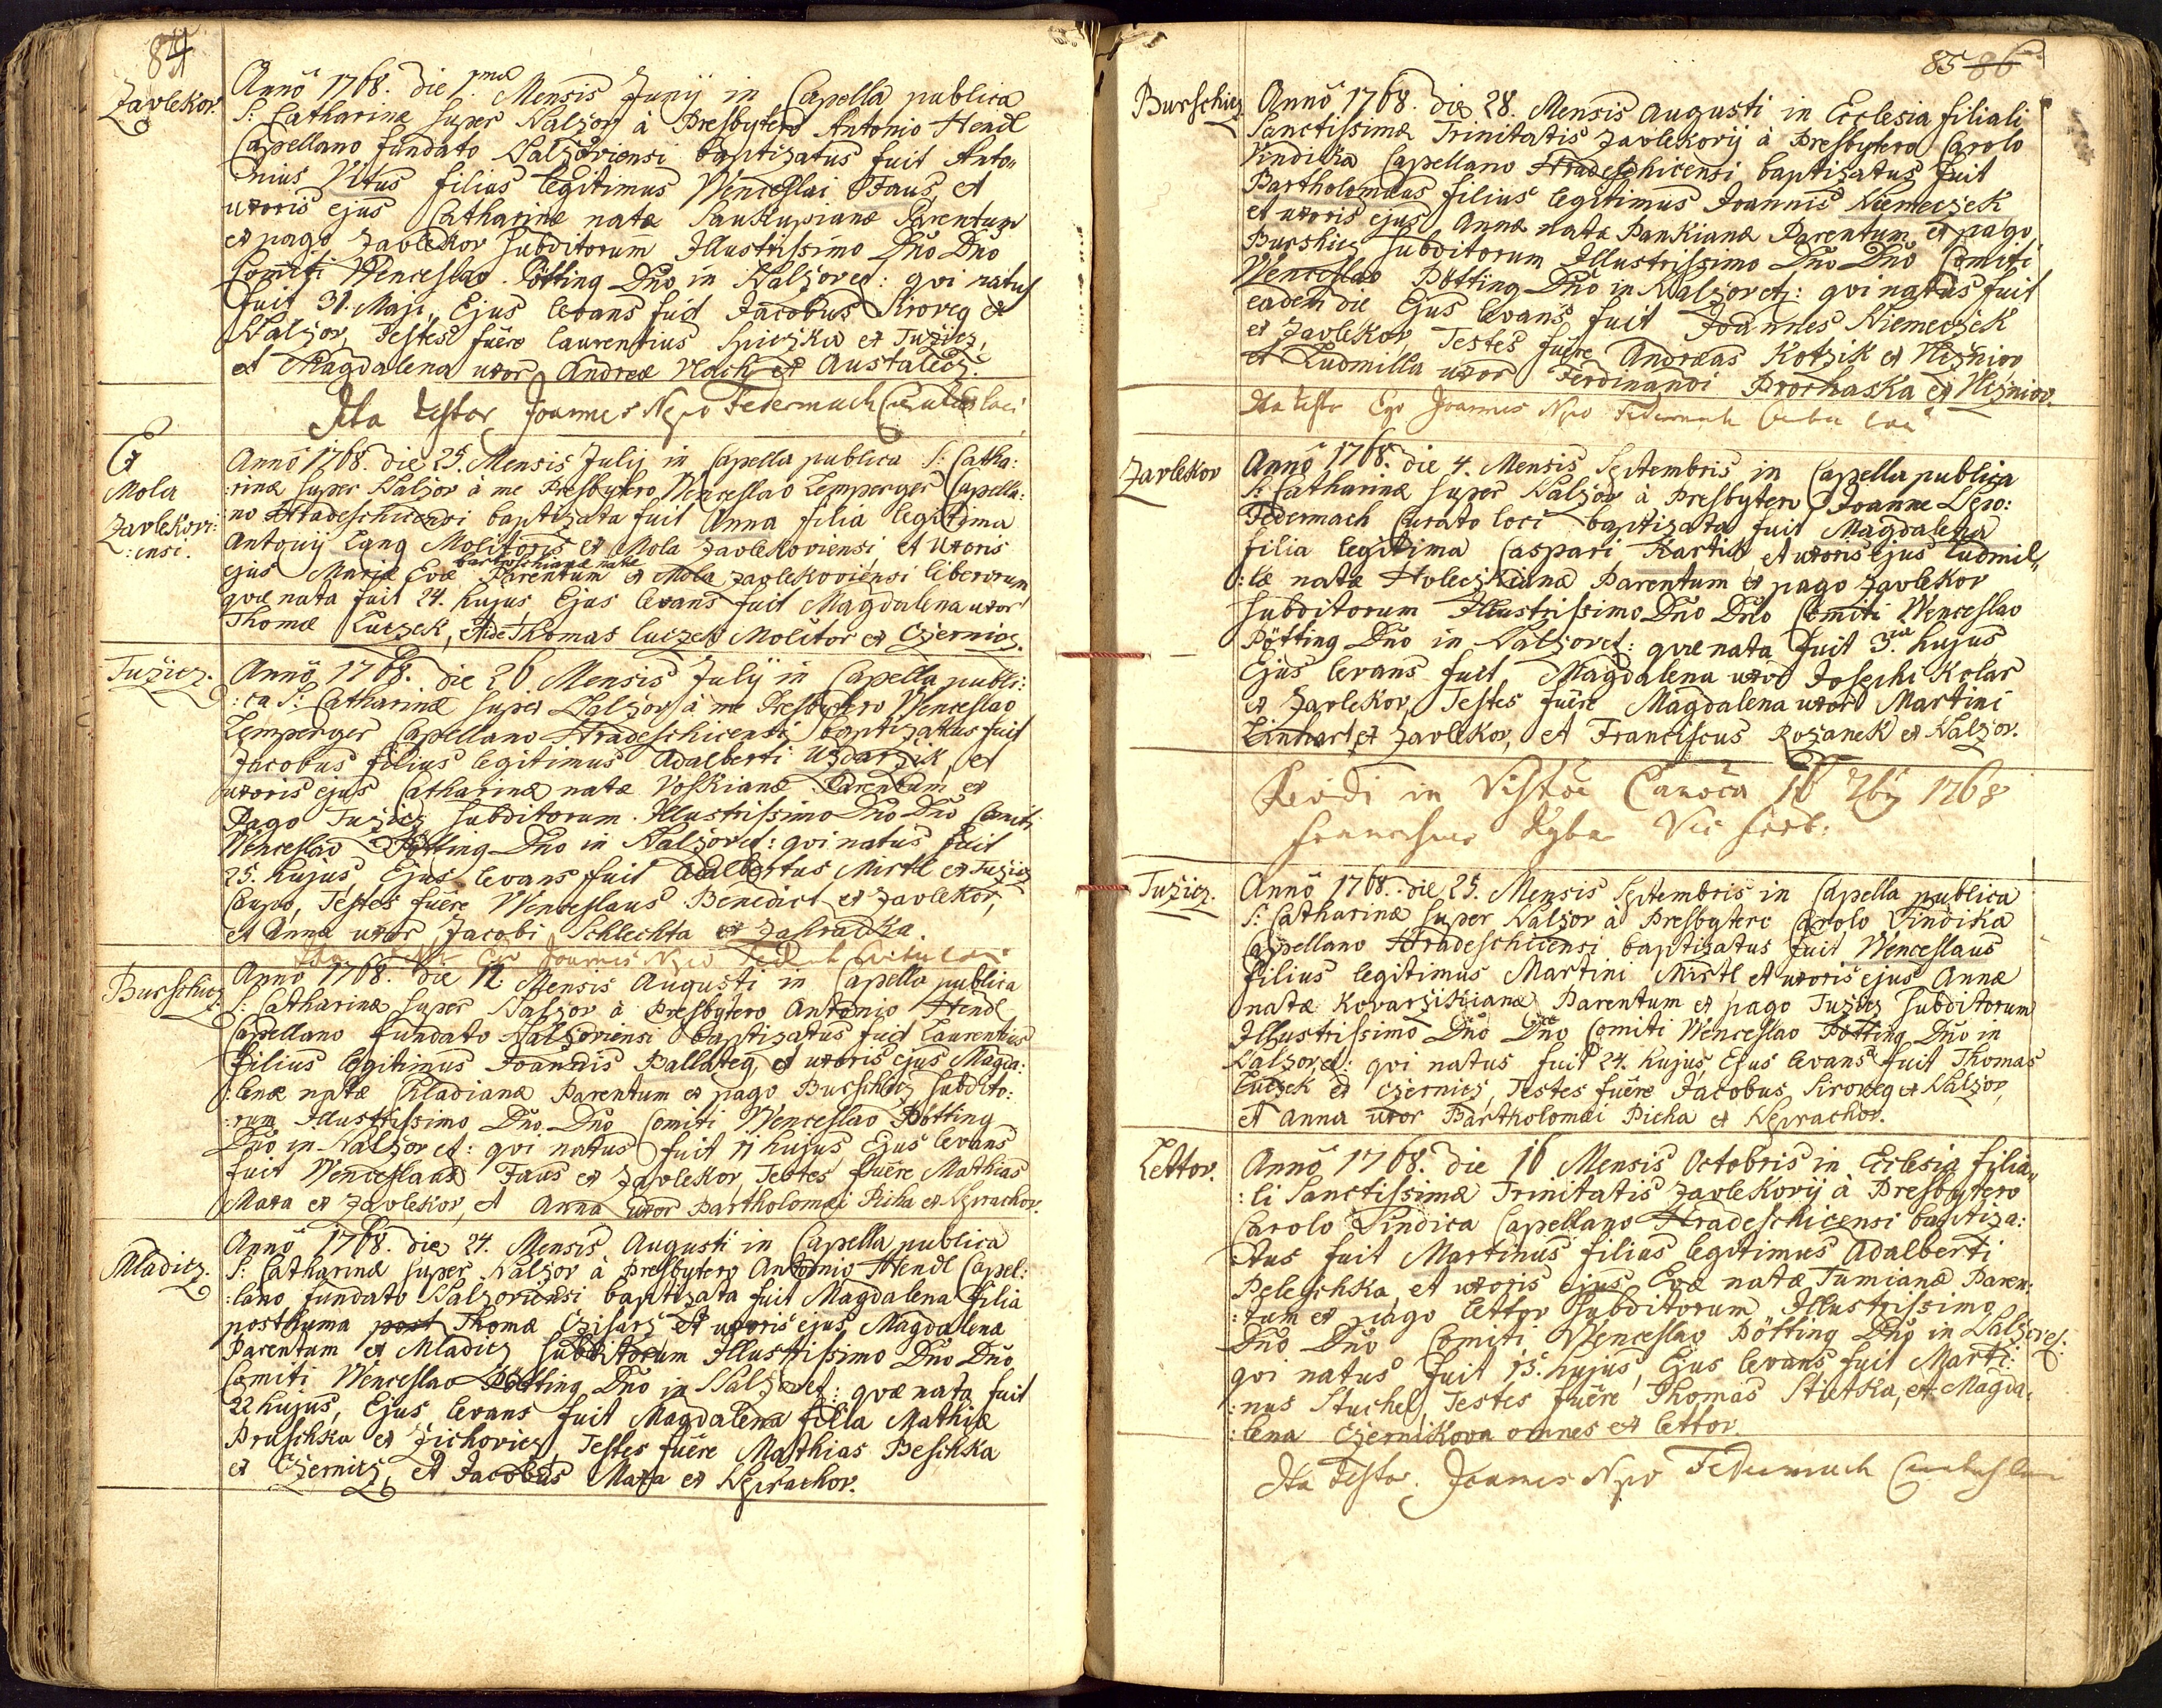 84
Zavlekov.
Annô 1768. die 1ma Mensis Junij in Capella publica
S: Catharinæ super Nalzov à Presbytero Antonio Hendl
Capellano fundato Nalzoviensi baptizatus fuit Anto„
nius Vitus filius legitimus Wenceslai Faus, et
uxoris ejus Catharinæ natæ Saukupianæ Parentum
ex pago Zavlekov Subditorum Illustrissimo Dño Dño
Comiti Wenceslao Pötting Dño in Nalzov et: qvi natus
fuit 31. Maji, Ejus levans fuit Jacobus Siroveg ex
Nalzov, Testes fuêre Laurentius Spiczka ex Tuzicz,
et Magdalena uxor Andreæ Vlach ex Austalecz.
Ita testor Joannes Nepo Federmach Curatus loci
Ex
Mola
Zavlekovi:
:ensi.
Annô 1768. die 25. Mensis Julij in Capella publica S: Catha:
:rinæ super Nalzov à me Presbytero Wenceslao Lemperger Capella:
no Hradeschicensi baptizata fuit Anna filia legitima
Antonij Lang Molitoris ex Mola Zavlekoviensi et Uxoris
bartoschianæ natæ
ejus Mariæ Evæ Parentum ex Mola Zavlekoviensi liberorum
qvæ nata fuit 24. hujus Ejus levans fuit Magdalena uxor
Thomæ Luczek, Thomas Luczek Molitor ex Czernicz.
Tuzicz.
Annô 1768. die 26 Mensis Julij in Capella publi:
:ca S: Catharinæ super Nalzov à me Presbytero Wenceslao
Lemperger Capellano Hradeschicensi baptizatus fuit
Jacobus filius legitimus Adalberti Uzdarzik, et
uxoris ejus Catharinæ natæ Voskianæ Parentum ex
Pago Tuzicz Subditorum Illustrissimo Dño Dño Comiti
Wenceslao Pötting Dño in Nalzov et: qvi natus fuit
25. hujus Ejus levans fuit Adalbertus Mirtl ex Tuzicz
Caupo, Testes fuêre Wenceslaus Benedict ex Zavlekov,
et Anna uxor Jacobi Schlechta ex Zahradka.
Ita Ego Joannes Nepo
Burschicz
Anno 1768. die 12. Mensis Augusti in Capella publica
S: Catharinæ super Nalzov à Presbytero Antonio Hendl
Capellano fundato Nalzoviensi baptizatus fuit Laurentius
filius legitimus Joannis Ballateg, et uxoris ejus Magda:
:lenæ natæ Chladianæ Parentum ex pago Burschicz Subdito:
:rum Illustrissimo Dño Dño Comiti Wenceslao Pötting
Dño in Nalzov et: qvi natus fuit 11 hujus, Ejus levans
fuit Wenceslaus Faus ex Zavlekov, Testes fuêre Mathias
Maxa ex Zavlekov, et Anna uxor Bartholomæi Picha ex Neprachov.
Mladicz.
Annô 1768. die 24. Mensis Augusti in Capella publica
S: Catharinæ super Nalzov à Presbytero Antonio Hendl Capel:
:lano fundato Nalzoviensi baptizata fuit Magdalena filia
posthuma post Thomæ Czisarz et uxoris ejus Magdalenæ
Parentum ex Mladicz Subditorum Illustrissimo Dño Dño
Comiti Wenceslao Pötting Dño in Nalzov et: qvæ nata fuit
22 hujus, Ejus levans fuit Magdalena filia Mathiæ
Pruschka ex Zichovicz, Testes fuêre Mathias Beschka
ex Czernicz, et Jacobus Maxa ex Neprachov.
85 86
Burschicz
Annô 1768. die 28. Mensis Augusti in Ecclesia filiali
Sanctissimæ Trinitatis Zavlekovij à Presbytero Carolo
Sindika Capellano Hradeschicensi baptizatus fuit
Bartholomæus filius legitimus Joannis Niemeczek
et uxoris ejus Annæ natæ Pankianæ Parentum ex pago
Burshicz Subditorum Illustrissimo Dño Dño Comiti
Wenceslao Pötting Dño in Nalzov etz: qvi natus fuit
eadem die Ejus levans fuit Joannes Niemeczek
ex Zavlekov, Testes fuêre Andreas Kotzik ex Viznior,
et Ludmilla uxor Ferdinandi Prochaska ex Viznior.
Ita testor Ego Joannes Nepo Federmach Curatus loci
Zavlekov
Annô 1768. die 4. Mensis Septembris in Capella publica
S: Catharinæ super Nalzov à Presbytero Joanne Nepo:
Federmach Curato loci baptizata fuit Magdalena
filia legitima Caspari Hartik et uxoris ejus Ludmil„
:læ natæ Holeczkianæ Parentum ex pago Zavlekov
Subditorum Illustrissimo Dño Dño Comiti Wenceslao
Pötting Dño in Nalzov et: qvæ nata fuit 3tia hujus
Ejus levans fuit Magdalena uxor Josephi Kolar
ex Zavlekov, Testes fuêre Magdalena uxor Martini
Linhart ex Zavlekov, et Franciscus Rozanek ex Nalzov.
Revidi in Visitõe Canõca 16 7bris 1768
Franciscus Ryba Vic
Tužicz.
Annô 1768. die 25. Mensis Septembris in Capella publica
S: Catharinæ super Nalzov à Presbytero Carolo Sindika
Cappellano Hradeschicensi baptizatus fuit Wenceslaus
filius legitimus Martini Mirtl, et uxoris ejus Annæ
natæ Kovarzikianæ Parentum ex pago Tuzicz Subditorum
Illustrissimo Dño Dño Comiti Wenceslao Pötting Dño in
Nalzov, et: qvi natus fuit 24. hujus, Ejus levans fuit Thomas
Luczek ex Czernicz, Testes fuêre Jacobus Siroveg ex Nalzov,
et Anna uxor Bartholomæi Picha ex Neprachov.
Lettov.
Annô 1768. die 16 Mensis Octobris in Ecclesia filia„
:li Sanctissimæ Trinitatis Zavlekovij à Presbytero
Carolo Sindica Capellano Hradeschicensi baptiza:
:tus fuit Martinus filius legitimus Adalberti
Peleschka, et uxoris ejus Evæ natæ Tumianæ Paren:
:tum ex pago Lettov Subditorum Illustrissimo
Dño Dño Comiti Wenceslao Pötting Dño in Nalzov et:
qvi natus fuit 15. hujus, Ejus levans fuit Marti:
:nus Stuchel, Testes fuêre Thomas Stietka, et Magda:
:lena Czernikova omnes ex Lettov.
Ita Testor Joannes Nepo Federmach Curatus loci